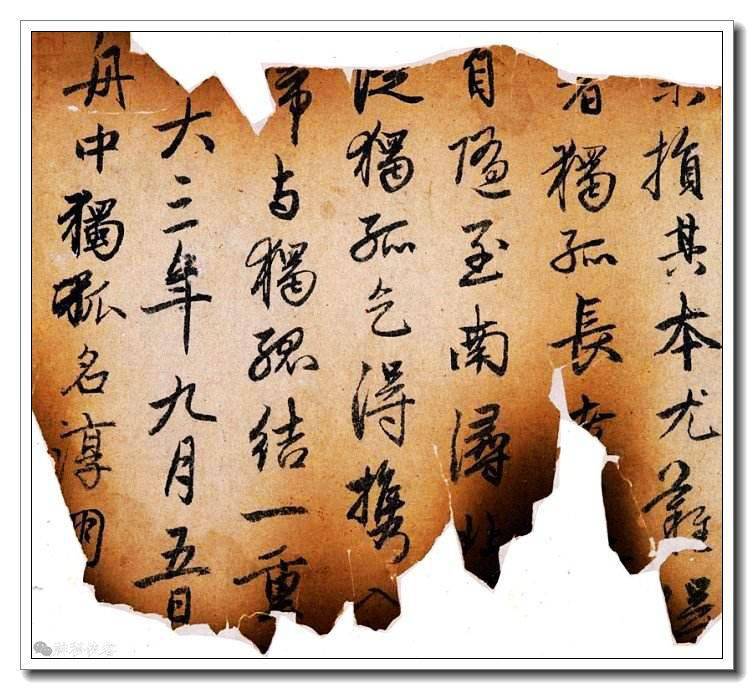 損其本尤難得
者獨孤長老
自随至南潯北
從獨孤乞得攜入
歸与獨孤結一重
大三年九月五日
舟中獨孤名淳朋